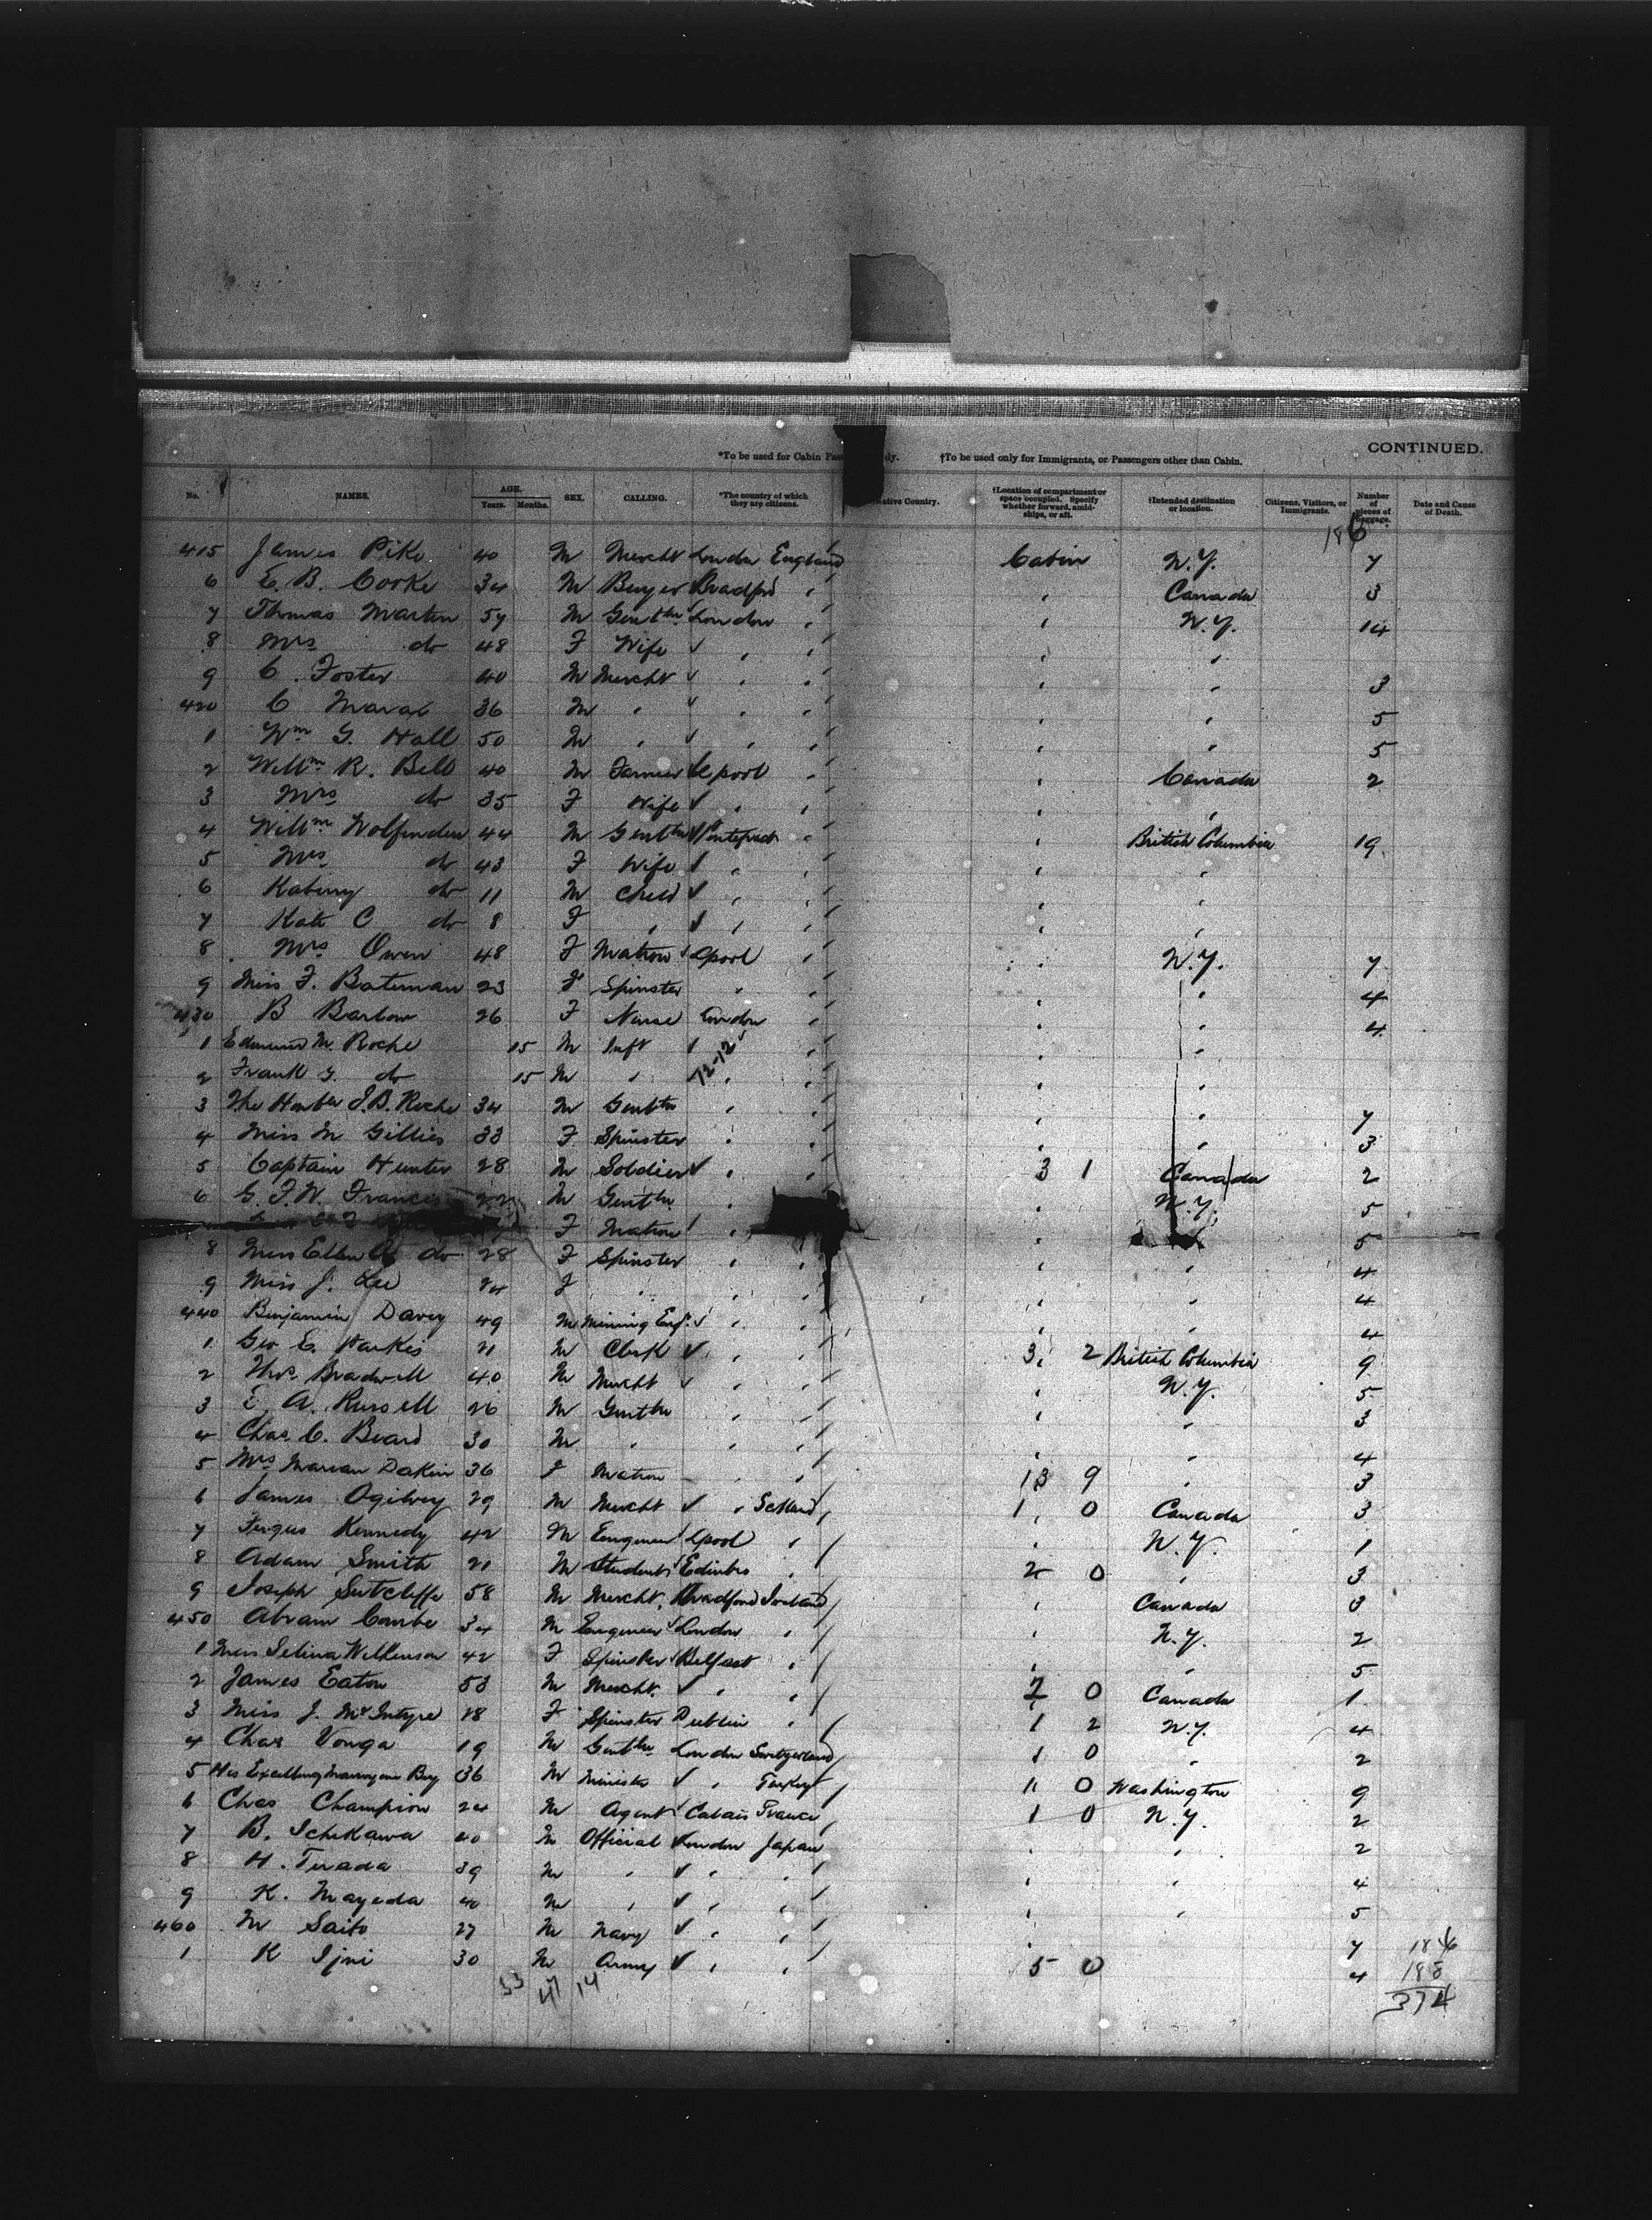 CONTINUED.
*To be used for Cabin †To be used only for Immigrants, or Passengers other than Cabin.
No. NAMES. AGE. Years. Months. SEX. CALLING. *The country of which they are citizens. Native Country. †Location of compartment or space occupied. Specify whether forward, amidships, or aft. †Intended destination or location. Citizens, Visitors, or Immigrants. Number of pieces of Baggage. Date and Cause of Death.
186
415 James Pike 40 M Mercht London England Cabin N.Y. 7
6 E. B. Cooke 34 M Buyer Bradford " " Canada 3
7 Thomas Marten 54 M Gentln London " " N.Y. 14
8 Mrs do 48 F Wife " " " "
9 C. Foster 40 M Mercht " " " " 3
420 C 36 M " " " " " 5
1 Wm G. Hall 50 M " " " " " 5
2 Willm R. Bell 40 M Farmer L'pool " " Canada 2
3 Mrs do 35 F Wife " " " "
4 Willm Wolfenden 44 M Gentln Pontefract " " British Columbia 19
5 Mrs do 43 F Wife " " " "
6 do 11 M Child " " " "
7 Kate C do 8 F " " " " "
8 Mrs Owen 48 F Matron L'pool " " N.Y. 7
9 Miss F. Bateman 23 F Spinster " " " " 4
430 B Barlow 26 F Nurse London " " " 4
1 Edmund M. Roche 15 M Inft " " " "
2 Frank G. do 15 M " 72-12 " " " "
3 The Honble J. B. Roche 34 M Gentln " " " " 7
4 Miss M Gillies 33 F Spinster " " " " 3
5 Captain Hunter 28 M Soldier " " 3 1 Canada 2
6 G. F. W. Francis 22 M Gentln " " N.Y. 5
F Matron " " " 5
8 Miss Ellen do 28 F Spinster " " " " 4
9 Miss J. Lee 24 F " " " " " 4
440 Benjamin Davey 49 M Mining Eng. " " " " 4
1 Geo E. 21 M Clerk " " 3 2 British Columbia 9
2 Thos. Bradwell 40 M Mercht " " N.Y. 5
3 E. A. Russell 26 M Gentln " " " " 3
4 Chas. C. Beard 30 M " " " " " 4
5 Mrs Marian Dakin 36 F Matron " " 13 9 " 3
6 James Ogilvey 29 M Mercht " Scotland 1 0 Canada 3
7 Fergus Kennedy 42 M Engineer L'pool " " N.Y. 1
8 Adam Smith 21 M Student Edinbro " 2 0 " 3
9 Joseph Sutcliffe 58 M Mercht. Bradford Ireland " Canada 3
450 Abram Combe 34 M Engineer London " " N.Y. 2
1 Miss Selina Wilkinson 42 F Spinster Belfast " " " 5
2 James Eaton 53 M Mercht. " " 7 0 Canada 1
3 Miss J. McIntyre 28 F Spinster Dublin " 1 2 N.Y. 4
4 Chas Vonga 19 M Gentln London Switzerland 1 0 " 2
5 His Excellency Bey 36 M Minister " Turkey 1 0 Washington 9
6 Chas Champion 24 M Agent Calais France 1 0 N.Y. 2
7 B. Ichekawa 40 M Official London Japan " " 2
8 H. Terada 39 M " " " " " 4
9 K. Mayeda 40 M " " " " " 5
460 M Saito 27 M Navy " " " 7
1 K Ijui 30 M Army " " 5 0 4
33 41 14
186
188
374